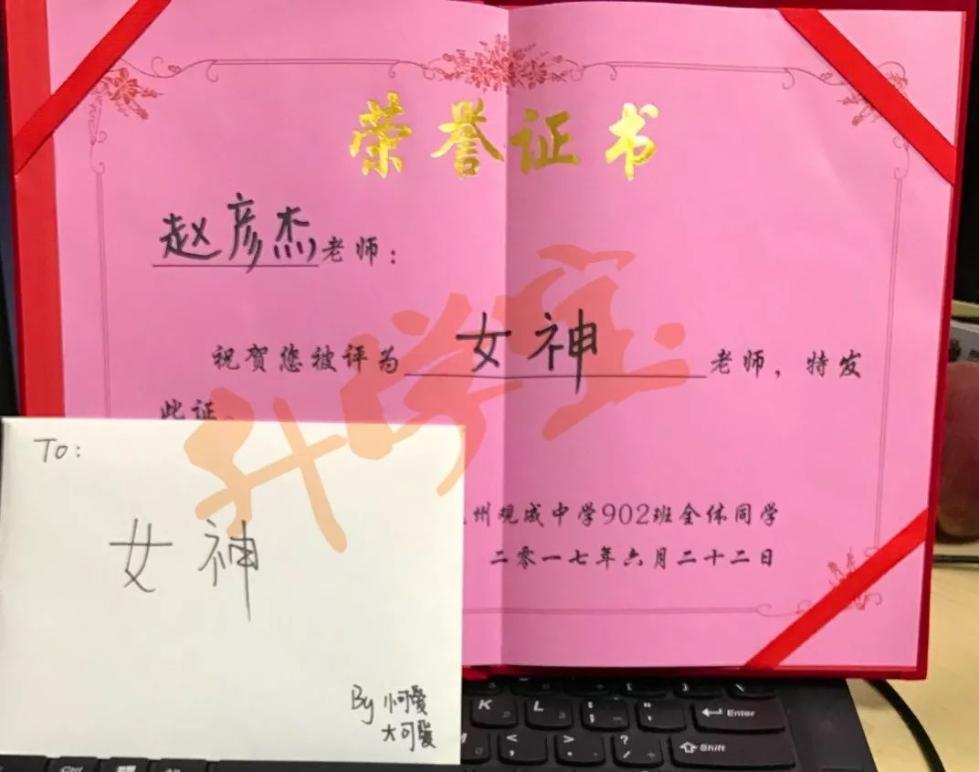 荣誉证书
赵彦杰老师：
祝贺您被评为 女神 老师，特发
此证。
州观成中学902班全体同学
二零一七年六月二十二日
To:
女神
By 小可爱
大可爱
升学宝
K L : ; " '
M < , > . ? / Enter
Shift
Ctrl Alt